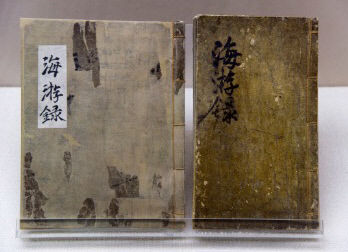 海游錄
海游錄